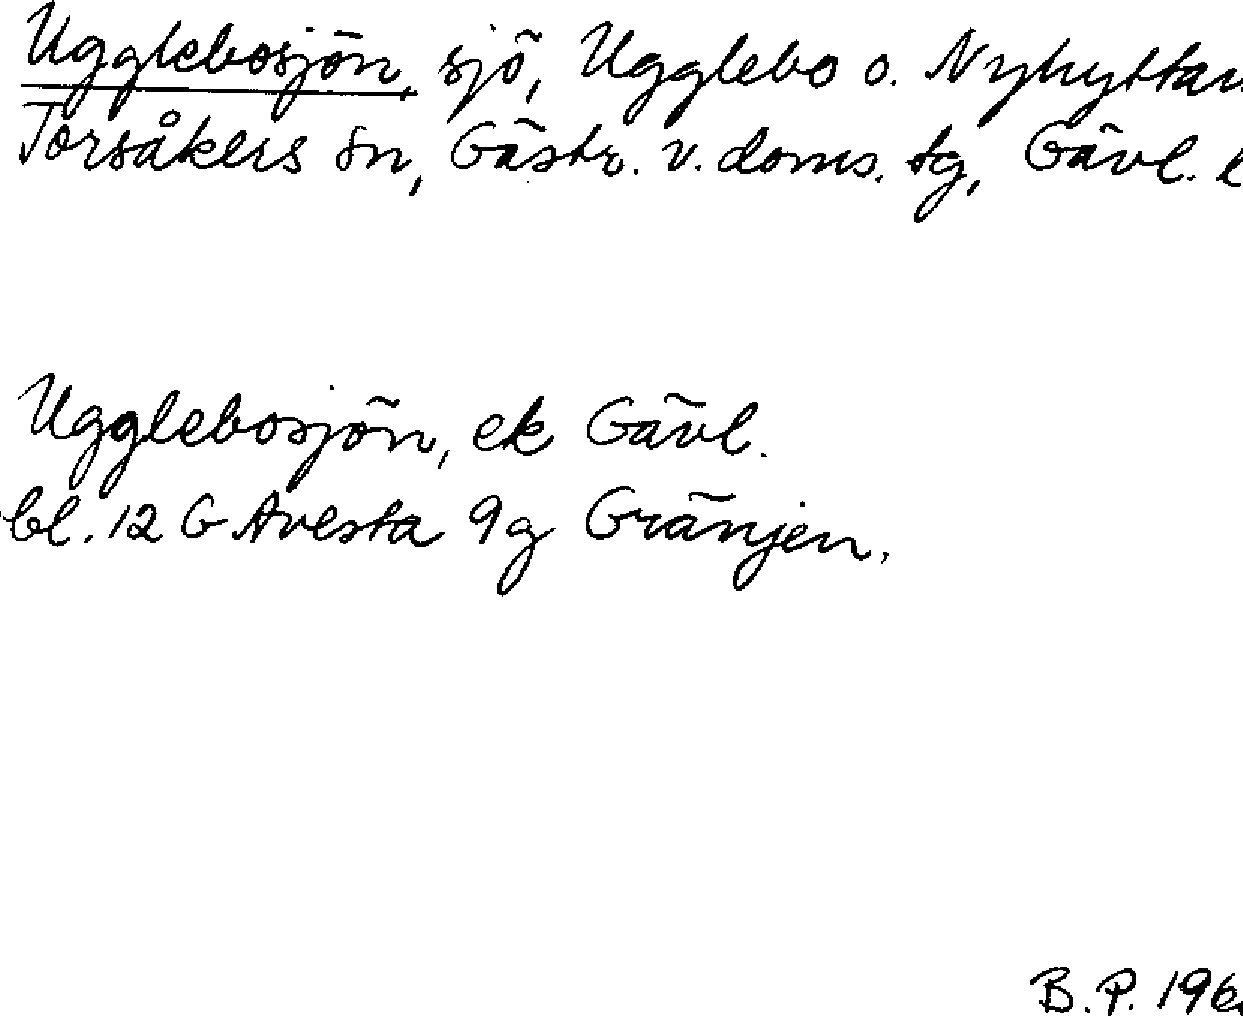 Ugglebosjön, sjö, Ugglebo o. Nyhyttan
Torsåkers sn, Gästr. v. doms. tg, Gävl. l
Ugglebosjön, ek Gävl.
bl. 12 G Avesta 9g Gränjen.
B.P. 196